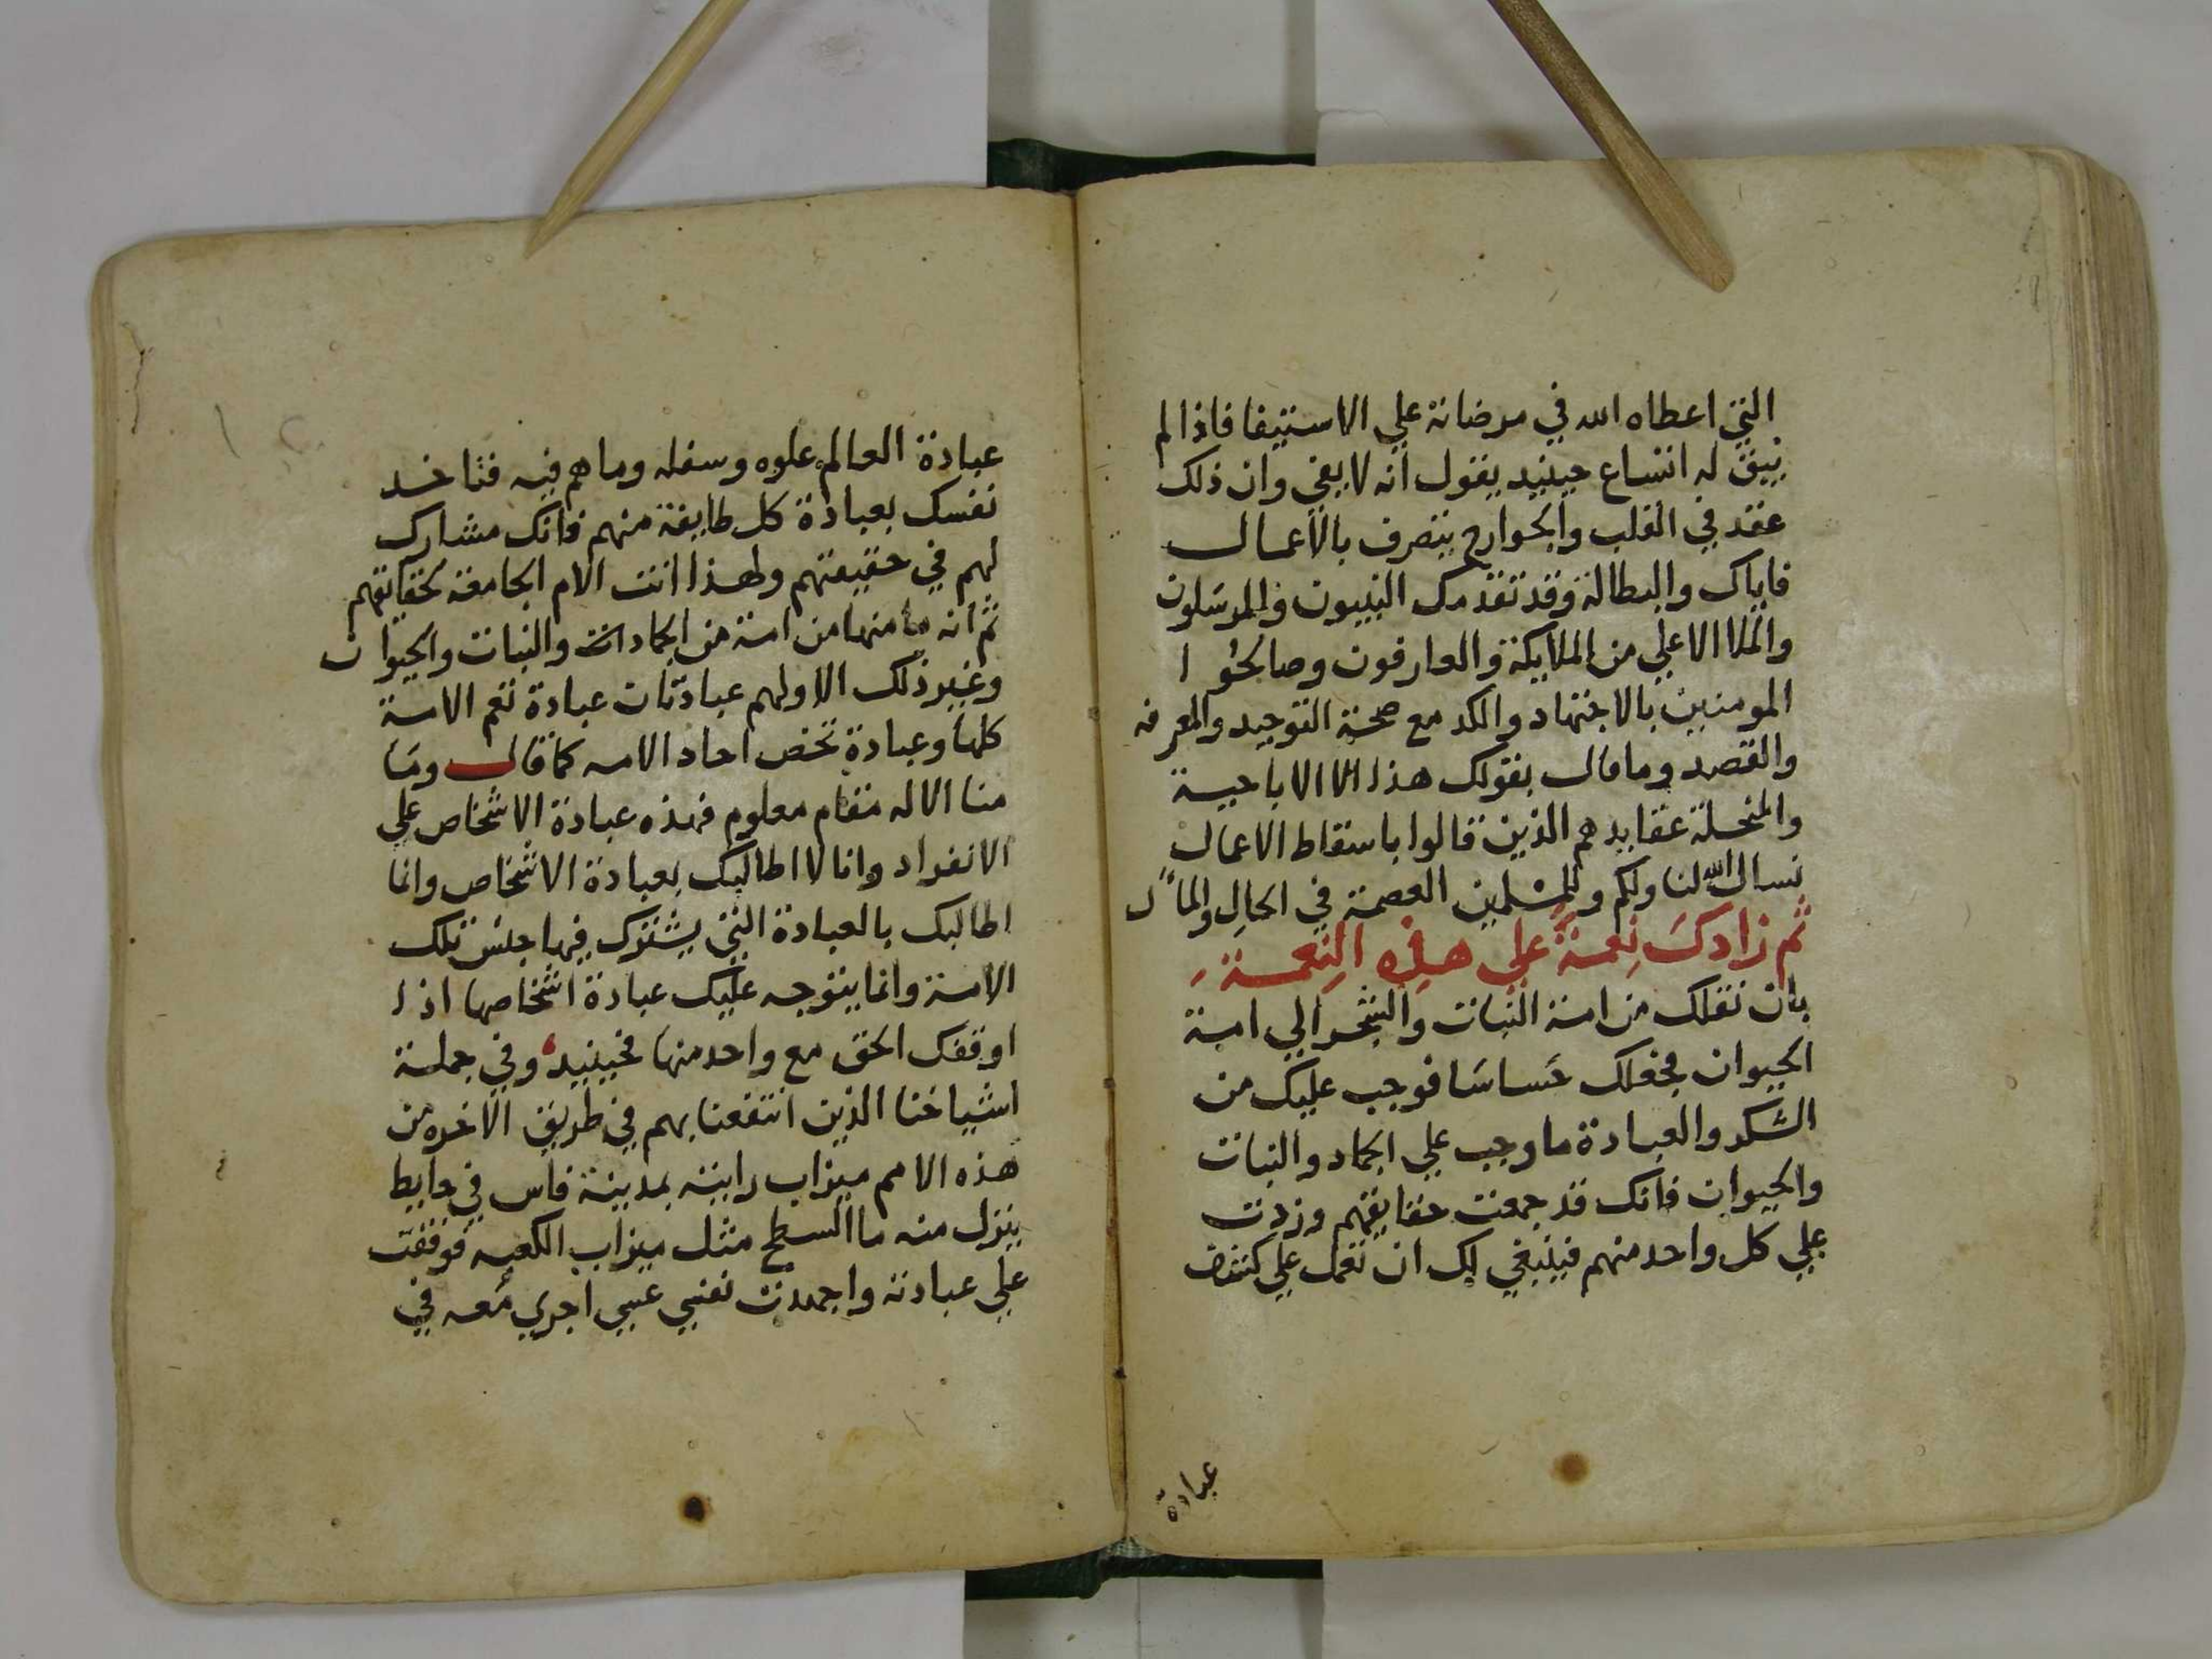 التي اعطاه الله في مرضاته علي الاستيفا فاذا لم
يبق له اتساع حينيد يقول انه لا يفي وان ذلك
عقد في القلب والجوارح يتصرف بالاعمال
فاياك والبطالة وقد تقدمك النبيون والمرسلون
والملا الاعلي من الملايكة والعارفون وصالحوا
المومنين بالاجتهاد والكد مع صحة التوحيد والمعرفه
والقصد وما قال بقولك هذا الا الاباحية
والمنحلة عقايدهم الذين قالوا باسقاط الاعمال
نسال الله لنا ولكم وللمسلمين العصمة في الحال والمآل
ثم زادك نعمة علي هذه النعمة
بان نقلك من امة النبات والشجر الي امة
الحيوان فجعلك حساسا فوجب عليك من
الشكر والعبادة ما وجب علي الجماد والنبات
والحيوان فانك قد جمعت حقايقهم وزدت
علي كل واحد منهم فينبغي لك ان تعمل علي
عبادة
عبادة العالم علوه وسفله وما هم فيه فتاخذ
نفسك بعبادة كل طايفة منهم فانك مشارك
لهم في حقيقتهم ولهذا انت الام الجامعة لحقائقهم
ثم انه ما منها من امة من الجمادات والنبات والحيوان
وغير ذلك الا ولهم عبادتان عبادة تعم الامة
كلها وعبادة تخص احاد الامه كما قال وما
منا الا له مقام معلوم فهذه عبادة الاشخاص علي
الانفراد وانا لا اطالبك بعبادة الاشخاص وانما
اطالبك بالعبادة التي يشترك فيها جنس تلك
الامة وانما يتوجه عليك عبادة اشخاصها اذا
اوقفك الحق مع واحد منها فحينيد وفي جملة
اشياخنا الذين انتفعنا بهم في طريق الاخره من
هذه الامم ميزاب رايته بمدينة فاس في حايط
ينزل منه ما السطح مثل ميزاب الكعبه فوقفت
علي عبادته واجهدت نفسي عسي اجري معه في